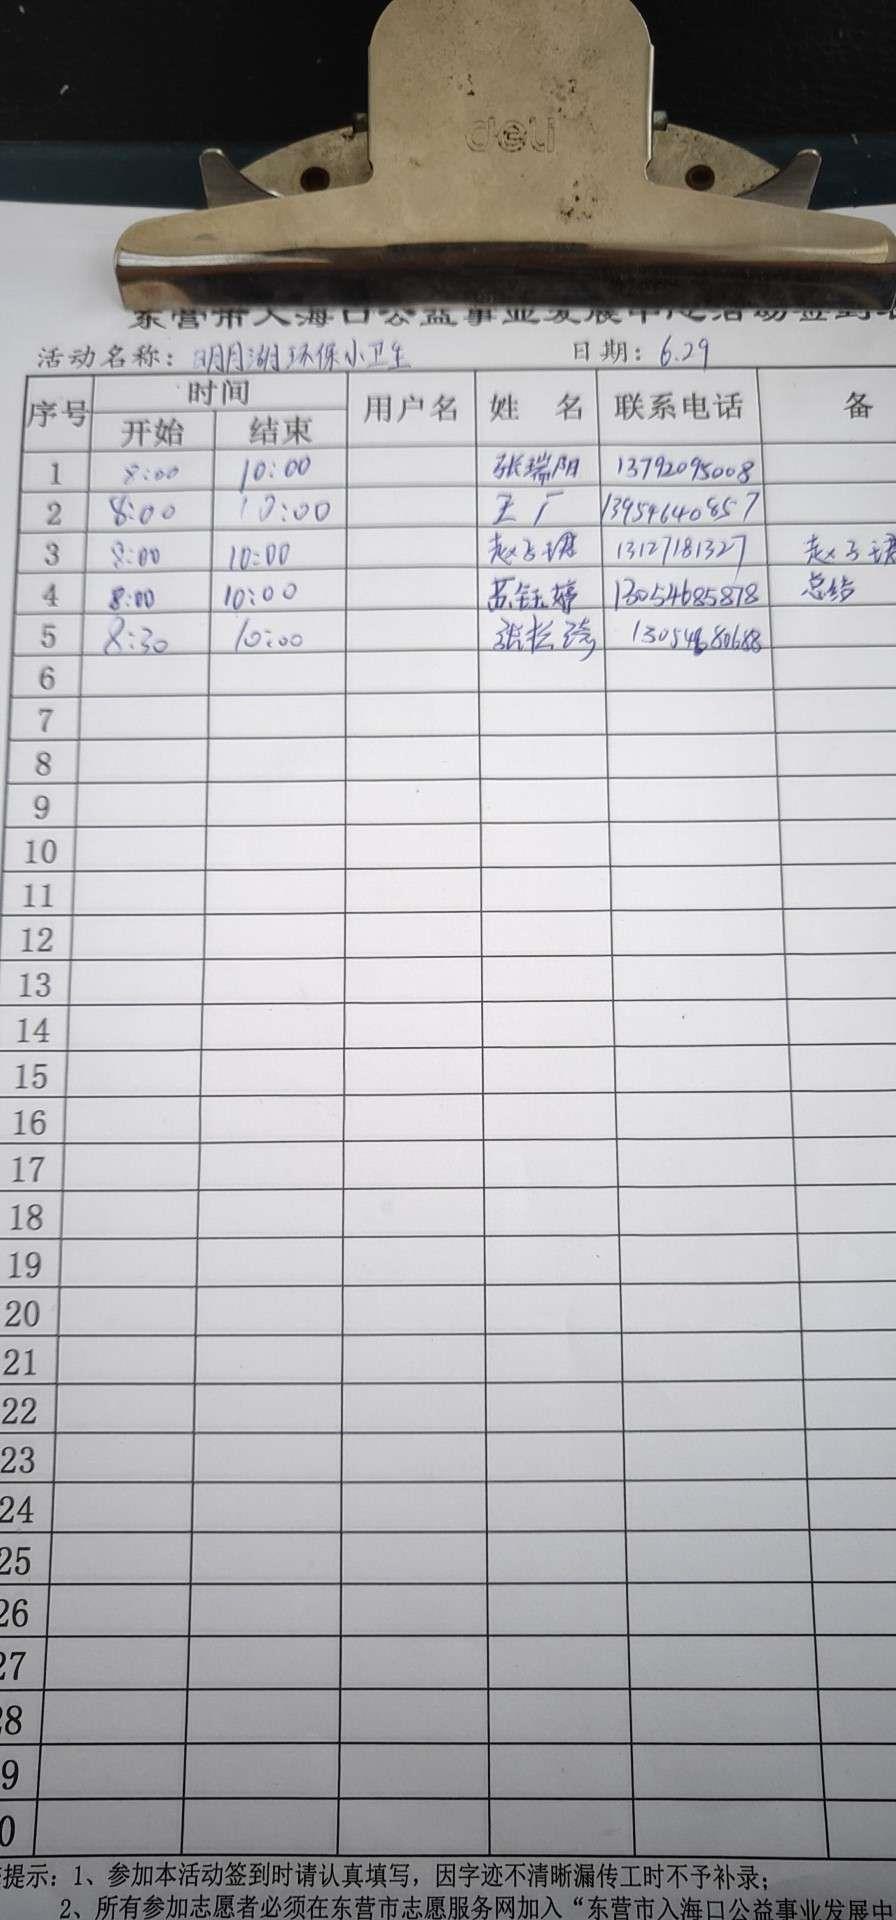 deli
东营市入海口公益事业发展中心活动签到
活动名称：明月湖环保小卫生 日期：6.29
序号 时间 用户名 姓 名 联系电话 备
开始 结束
1 8:00 10:00 张瑞阳 13792095008
2 8:00 10:00 王厂 13954640857
3 8:00 10:00 赵子珺 13127181327 赵子珺
4 8:00 10:00 苏钰婷 13054685878 总结
5 8:30 10:00 张 13054680688
6
7
8
9
10
11
12
13
14
15
16
17
18
19
20
21
22
23
24
25
26
27
28
9
0
提示：1、参加本活动签到时请认真填写，因字迹不清晰漏传工时不予补录；
2、所有参加志愿者必须在东营市志愿服务网加入“东营市入海口公益事业发展中